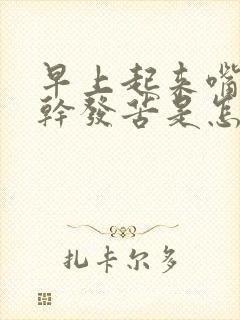 早上起来嘴
幹發苦是怎
扎卡尔多